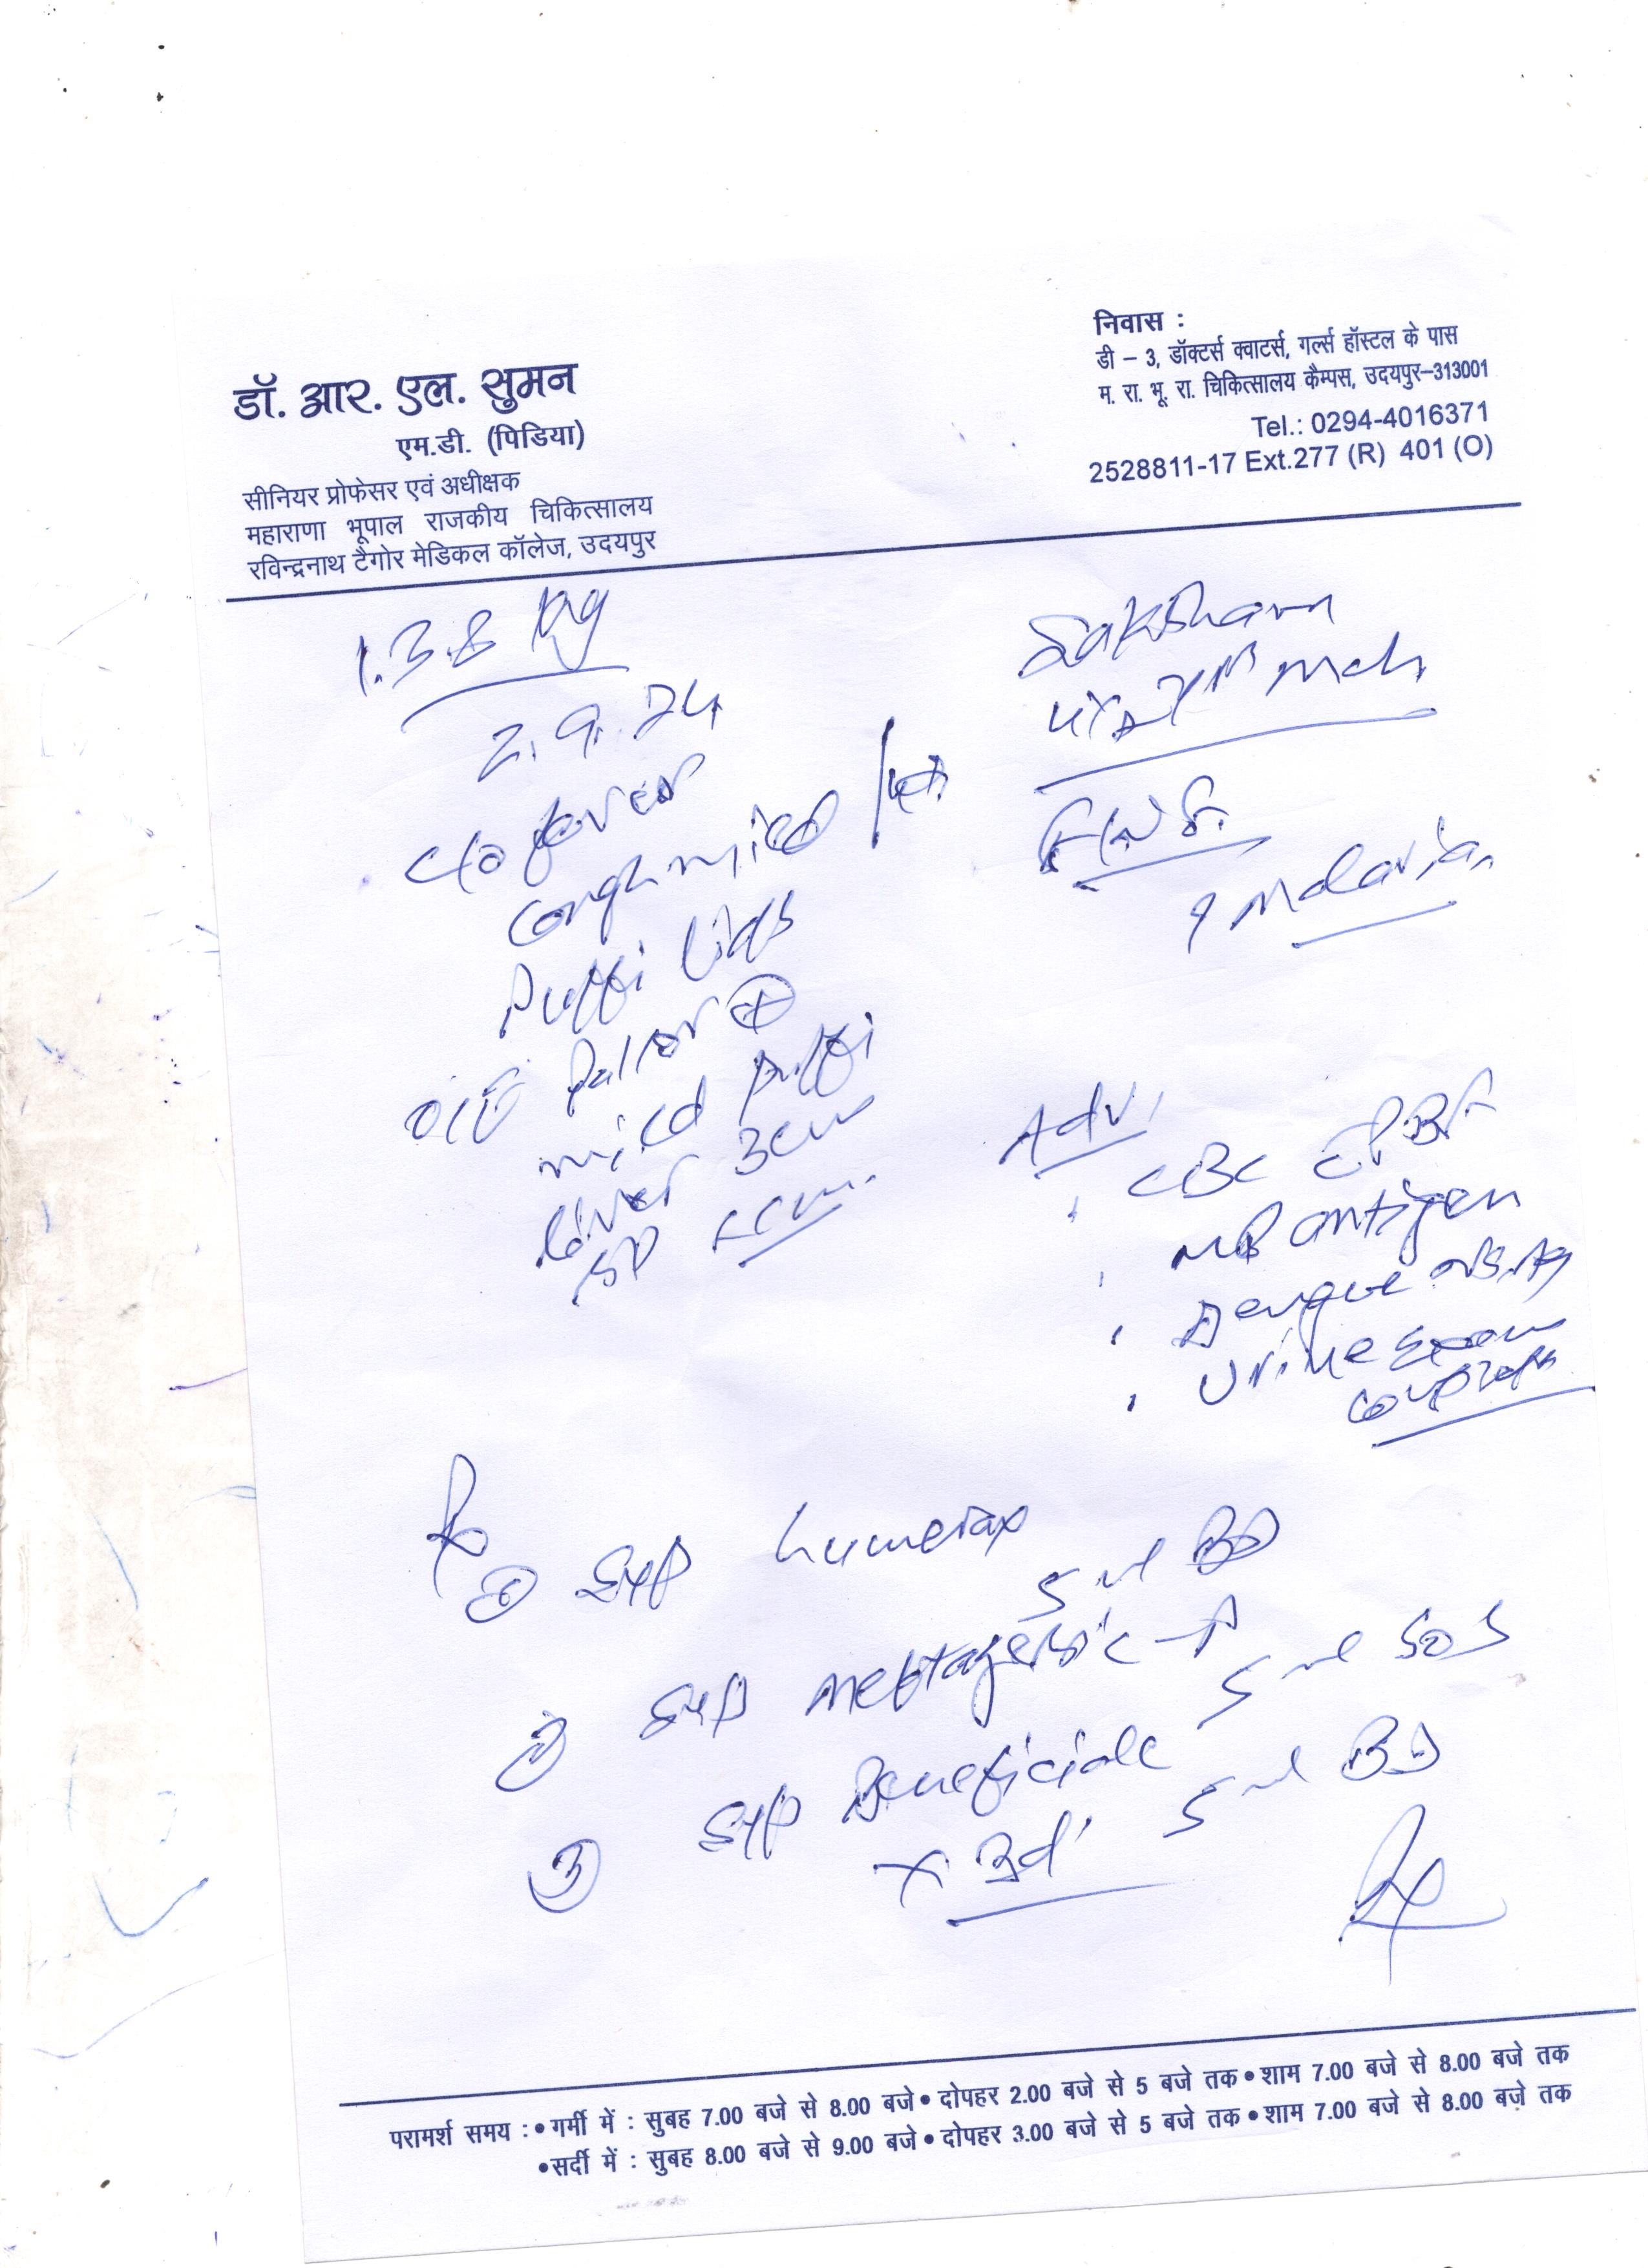 डॉ. आर. एल. सुमन
एम.डी. (पिडिया)
सीनियर प्रोफेसर एवं अधीक्षक
महाराणा भूपाल राजकीय चिकित्सालय
रविन्द्रनाथ टैगोर मेडिकल कॉलेज, उदयपुर
निवास :
डी – 3, डॉक्टर्स क्वाटर्स, गर्ल्स हॉस्टल के पास
म. रा. भू. रा. चिकित्सालय कैम्पस, उदयपुर–313001
Tel.: 0294-4016371
2528811-17 Ext.277 (R) 401 (O)
Kg
2.9.24
Saksham
Mch
c/o fever
cough mild
Puffi lids
O/E Pallor +
mild puffi
liver 3cm
SP
? Malaria
Adv.
CBC PBF
MP antigen
Dengue NS1Ag
Urine Exam
complete
Rx
① Syp
5 ml BD
② Syp
5 ml SOS
③ Syp Beneficiale
5 ml BD
x 3d
परामर्श समय : • गर्मी में : सुबह 7.00 बजे से 8.00 बजे • दोपहर 2.00 बजे से 5 बजे तक • शाम 7.00 बजे से 8.00 बजे तक
• सर्दी में : सुबह 8.00 बजे से 9.00 बजे • दोपहर 3.00 बजे से 5 बजे तक • शाम 7.00 बजे से 8.00 बजे तक